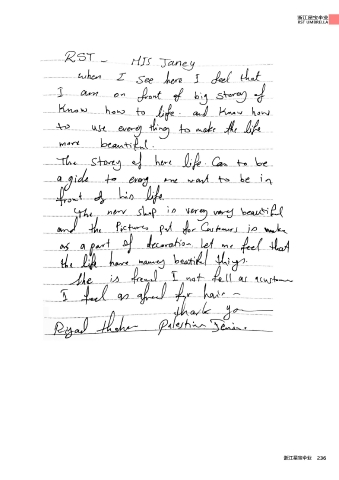 浙江星宝伞业
RST UMBRELLA
RST - MIS Janey
when I see here I feel that
I am on front of big storey of
Know how to life and know how
to use every thing to make the life
more beautiful.
The storey of here life Can to be
a gide to every one want to be in
front of his life.
The new shop is verey varey beautiful
and the Pictures put for Customers is make
as a part of decoration let me feel that
the life have maney beatiful things.
She is freind I not fell as acustomer
I feel as afreind for hair -
thank you
Riyad thaher Palestine Jenin
浙江星宝伞业 236